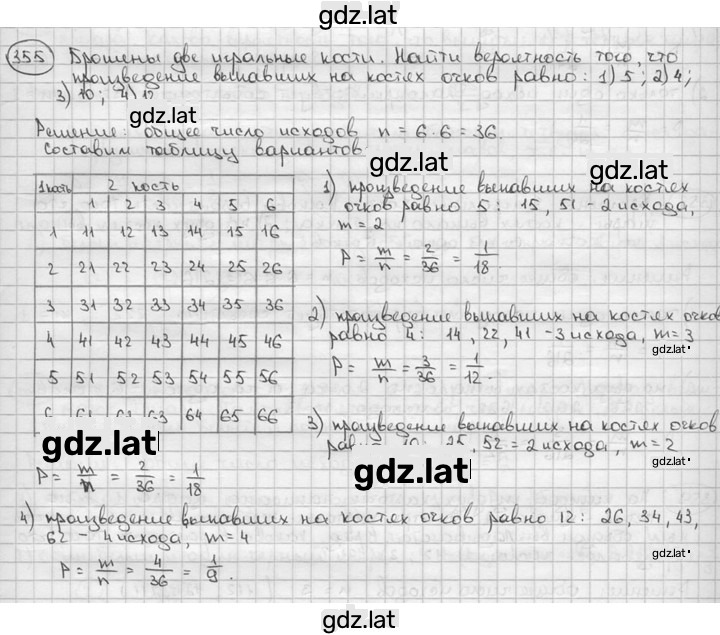 gdz.lat
355 Брошены две игральные кости. Найти вероятность того, что
произведение выпавших на костях очков равно: 1) 5; 2) 4;
3) 10; 4) 12
gdz.lat
Решение: общее число исходов n = 6·6 = 36.
Составим таблицу вариантов
gdz.lat
gdz.lat
1 кость 2 кость
1 2 3 4 5 6
1 11 12 13 14 15 16
2 21 22 23 24 25 26
3 31 32 33 34 35 36
4 41 42 43 44 45 46
5 51 52 53 54 55 56
6 61 63 64 65 66
1) произведение выпавших на костях
очков равно 5: 15, 51 - 2 исхода,
m = 2
P = m/n = 2/36 = 1/18.
2) произведение выпавших на костях очков
равно 4: 14, 22, 41 - 3 исхода, m = 3
gdz.lat
P = m/n = 3/36 = 1/12.
3) произведение выпавших на костях очков
52 = 2 исхода, m = 2
gdz.lat
gdz.lat
gdz.lat
P = m/n = 2/36 = 1/18
4) произведение выпавших на костях очков равно 12: 26, 34, 43,
62 - 4 исхода, m = 4
gdz.lat
P = m/n = 4/36 = 1/9.
gdz.lat